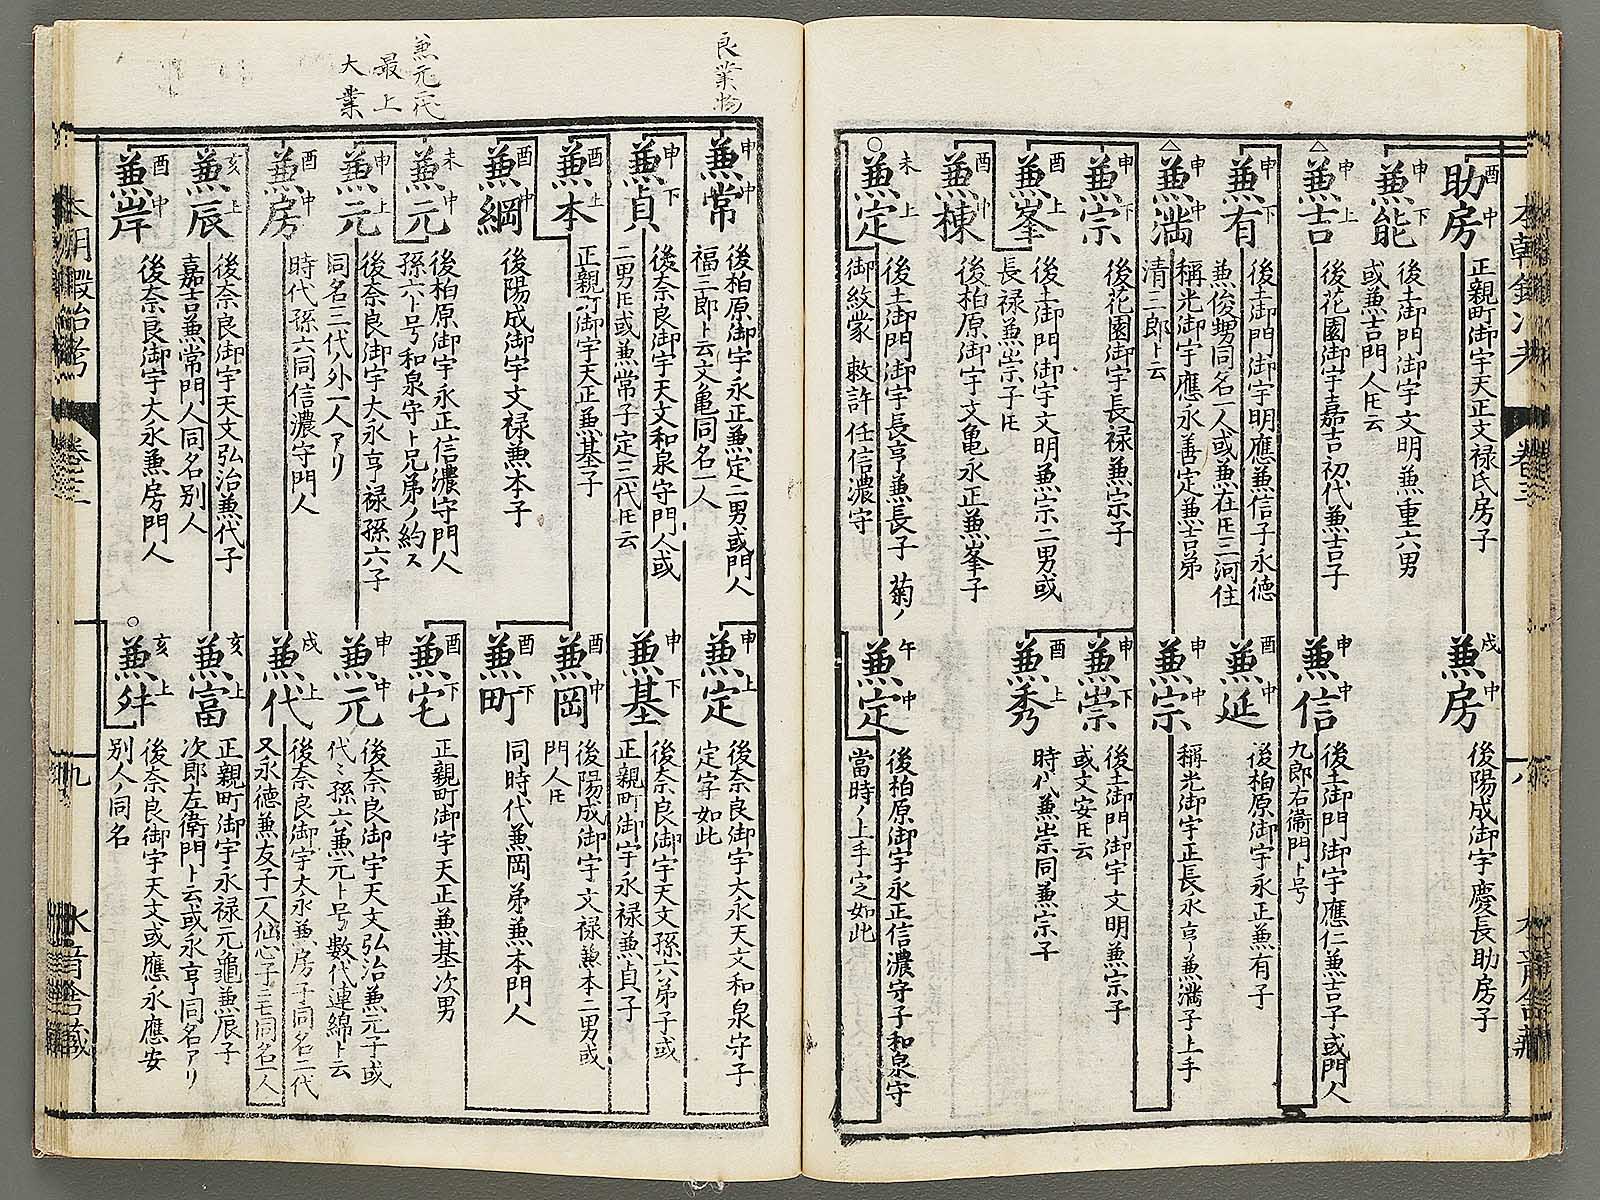 助房 酉中
正親町御宇天正文禄氏房子
兼房 戌中
後陽成御宇慶長助房子
兼能 申下
後土御門御宇文明兼重六男
或兼吉門人㪽云
△
兼吉 申上
後花園御宇嘉吉初代兼吉子
兼信 申中
後土御門御宇應仁兼吉子或門人
九郎右衛門ト号
兼有 申下
後土御門御宇明應兼信子永徳
兼俊甥同名一人或兼在㪽三河住
兼延 酉中
後柏原御宇永正兼有子
△
兼満 申中
稱光御宇應永善定兼吉弟
清三郎ト云
兼宗 申中
稱光御宇正長永亨兼満子上手
兼宗 申下
後花園御宇長禄兼宗子
兼崇 申下
後土御門御宇文明兼宗子
或文安㪽云
兼峯 酉上
後土御門御宇文明兼宗二男或
長禄兼崇子㪽
兼秀 酉上
時代兼崇同兼宗子
兼棟 酉中
後柏原御宇文亀永正兼峯子
○
兼定 未上
後土御門御宇長亨兼長子 菊ノ
御紋蒙 敕許任信濃守
兼定 午中
後柏原御宇永正信濃守子和泉守
當時ノ上手定如此
良業物
兼常 申中
後柏原御宇永正兼定二男或門人
福三郎ト云文亀同名一人
兼定 申上
後奈良御宇大永天文和泉守子
定字如此
兼貞 申下
後奈良御宇天文和泉守門人或
二男㪽或兼常子定三代㪽云
兼基 申下
後奈良御宇天文孫六弟子或
正親町御宇永禄兼貞子
兼本 酉上
正親町御宇天正兼基子
兼岡 酉中
後陽成御宇文禄兼本二男或
門人㪽
兼綱 酉中
後陽成御宇文禄兼本子
兼町 酉下
同時代兼岡弟兼本門人
兼元二代
最上
大業
兼元 未中
後柏原御宇永正信濃守門人
孫六ト号和泉守ト兄弟ノ約ス
兼宅 酉下
正親町御宇天正兼基次男
兼元 申上
後奈良御宇大永亨禄孫六子
同名三代外一人アリ
兼元 申中
後奈良御宇天文弘治兼元子或
代〻孫六兼元ト号ノ數代連綿ト云
兼房 酉中
時代孫六同信濃守門人
兼代 戌上
後奈良御宇大永兼房子同名二代
又永徳兼友子一人仙心子ニモ同名一人
兼辰 亥上
後奈良御宇天文弘治兼代子
嘉吉兼常門人同名別人
兼富 亥上
正親町御宇永禄元亀兼辰子
次郎左衛門ト云或永亨同名アリ
兼岸 酉中
後奈良御宇大永兼房門人
○
兼舛 亥上
後奈良御宇天文或應永應安
別人ノ同名
本朝鍛冶考
卷三
九
水音舍藏